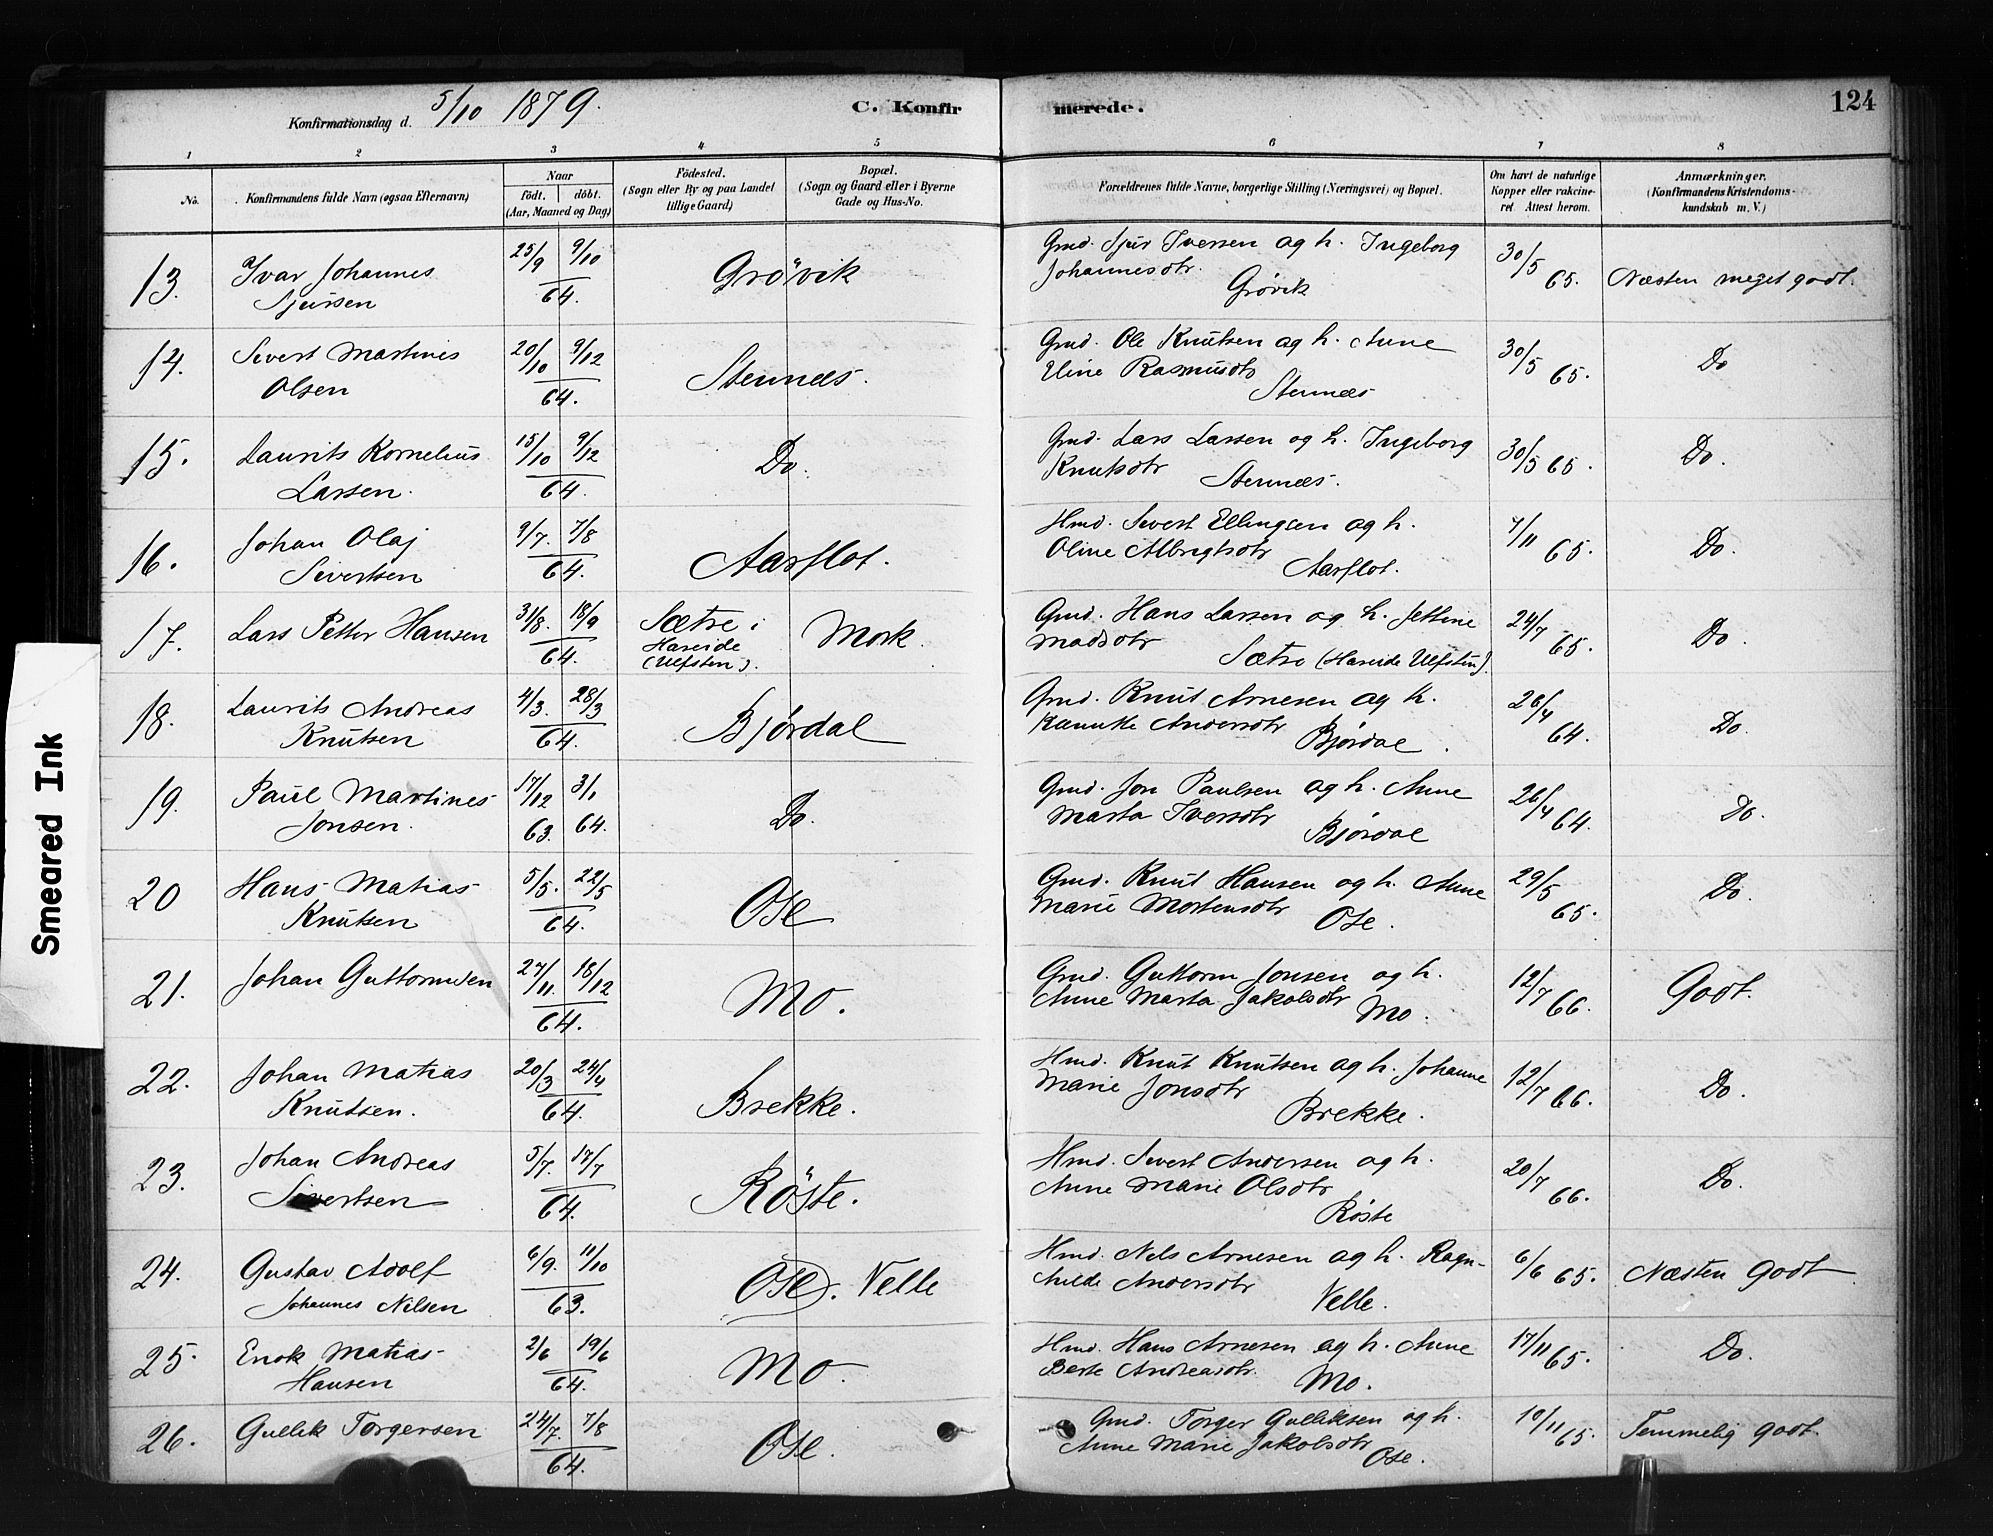 Konfirmationsdag d. 5/10 1879.
C. Konfirmerede.
124
1 2 3 4 5 6 7 8
No.
Konfirmandens fulde Navn (ogsaa Efternavn)
Naar
födt. döbt.
(Aar, Maaned og Dag)
Födested.
(Sogn eller By og paa Landet
tillige Gaard)
Bopæl.
(Sogn og Gaard eller i Byerne
Gade og Hus-No.
Forældrenes fulde Navne, borgerlige Stilling (Næringsvei) og Bopæl.
Om havt de naturlige
Kopper eller vakcine-
ret Attest herom.
Anmærkninger.
(Konfirmandens Kristendoms-
kundskab m. V.)
13. Ivar Johannes 25/9 9/10 Grövik Gmd. Sjur Iversen og h. Ingeborg 30/5 65. Næsten meget godt.
Sjursen 64. Johannesdtr. Grøvik
14. Sivert Martines 20/10 9/12 Stennes. Gmd. Ole Knutsen og h. Anne 30/5 65. Do
Olsen 64. Eline Rasmusdtr Stennæs
15. Laurits Kornelius 15/10 9/12 Do. Gmd. Lars Larsen og h. Ingeborg 30/5 65. Do.
Larsen. 64. Knutsdtr Stennæs.
16. Johan Olaj 9/7. 7/8 Aarflot. Hmd. Sivert Ellingsen og h. 7/11 65. Do.
Sivertsen 64. Oline Albrigtsdtr Aarflot.
17. Lars Petter Hansen 31/8. 18/9 64. Sætre i Mork. Gmd. Hans Larsen og h. Jettine 24/7 65. Do.
Hareide
(Ulfsten). Madsdtr Sætre (Hareide Ulfsten).
18. Laurits Andreas 4/3. 28/3 Bjørdal Gmd. Knut Arnesen og h. 26/4 64. Do.
Knutsen 64. Rannike Andersdtr Bjørdal.
19. Paul Martines 17/12 3/1 Do. Gmd. Jon Paulsen og h. Anne 26/4 64. Do.
Jonsen. 63. 64. Marta Iversdtr Bjørdal
20 Hans Matias 5/5. 22/5 Ose Gmd. Knut Hansen og h. Anne 29/5 65. Do.
Knutsen 64. Marie Mortensdtr Ose.
21. Johan Guttormsen 27/11. 18/12 64. Mo. Gmd. Guttorm Jonsen og h. 12/7 66. Godt.
Anne Marta Jakobsdtr Mo.
22. Johan Matias 20/3 24/4 Brekke. Hmd. Knut Knutsen og h. Johanne 12/7 66. Do.
Knutsen. 64. Marie Jonsdtr Brekke.
23. Johan Andreas 5/7. 17/7 Röste. Hmd. Sivert Andersen og h. 20/7 66. Do.
Sivertsen 64. Anne Marie Olsdtr Röste
24. Gustav Adolf 6/9. 11/10 Ose. Velle Hmd. Nels Arnesen og h. Ragn- 6/6 65. Næsten godt
Johannes Nilsen 63. hilde Andersdtr Velle.
25. Enok Matias 2/6 19/6 Mo. Hmd. Hans Arnesen og h. Anne 17/11 65. Do.
Hansen 64. Berte Andreasdtr. Mo.
26. Gullik Torgersen 24/7. 7/8 64. Ose. Gmd. Torger Gulliksen og h. 10/11 65. Temmelig godt.
Anne Marie Jakobsdtr Ose.
Smeared Ink